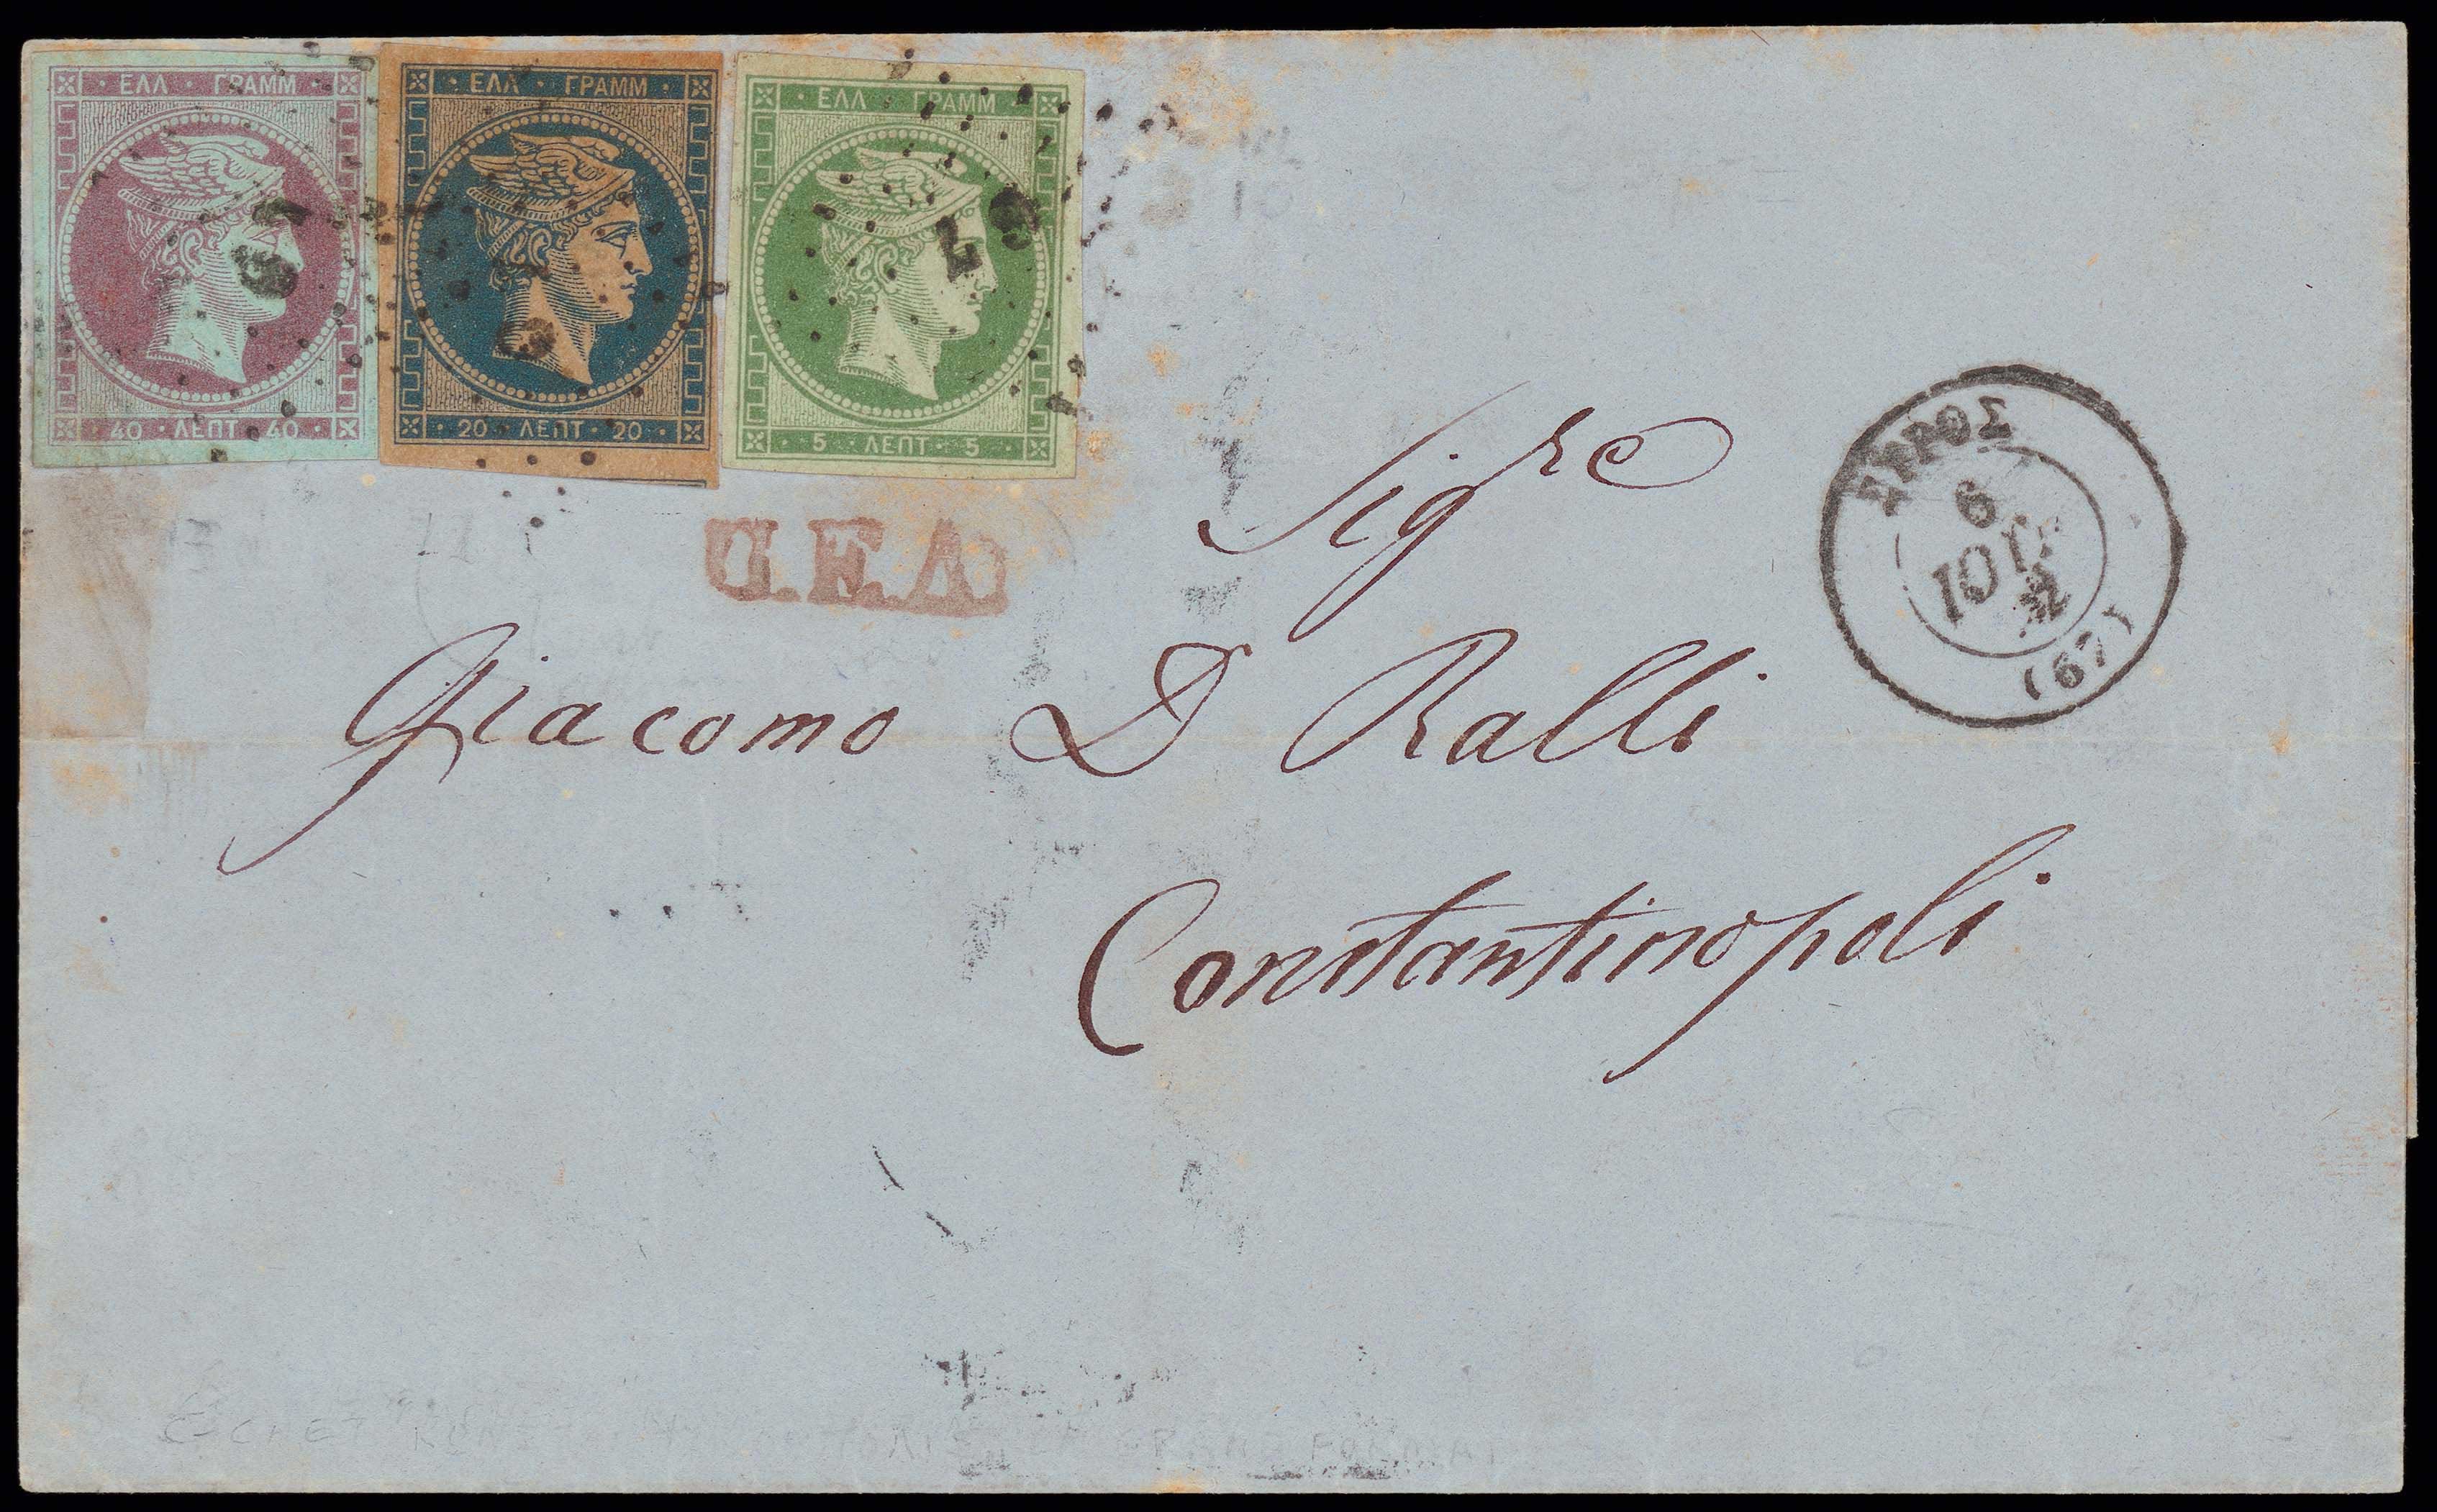 ΕΛΛ · ΓΡΑΜΜ
40 · ΛΕΠΤ · 40
ΕΛΛ · ΓΡΑΜΜ
20 · ΛΕΠΤ · 20
ΕΛΛ · ΓΡΑΜΜ
5 · ΛΕΠΤ · 5
67
67
ΣΥΡΟΣ
6
ΙΟΥΛ
(67)
Sigre
Giacomo D Ralli
Constantinopoli